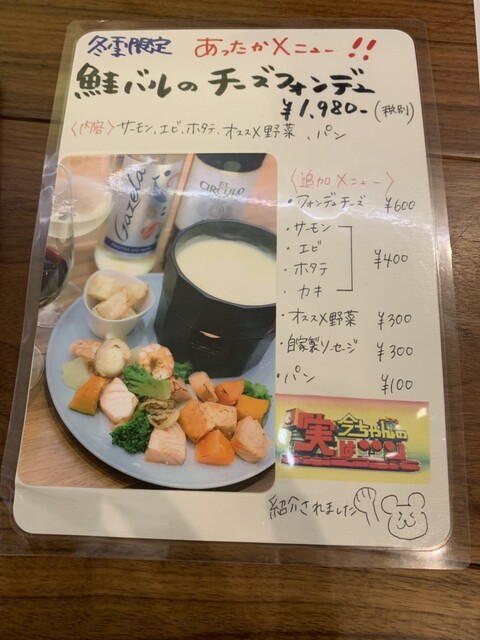 冬季限定 あったかメニュー!!
鮭バルの チーズフォンデュ
¥1,980-(税別)
〈内容〉サーモン、エビ、ホタテ、オススメ野菜、パン
〈追加メニュー〉
・フォンデュチーズ ¥600
・サーモン
・エビ
・ホタテ
・カキ
¥400
・オススメ野菜 ¥300
・自家製ソーセージ ¥300
・パン ¥100
Gazela
CIRCULO
今ちゃんの
実は…
紹介されました